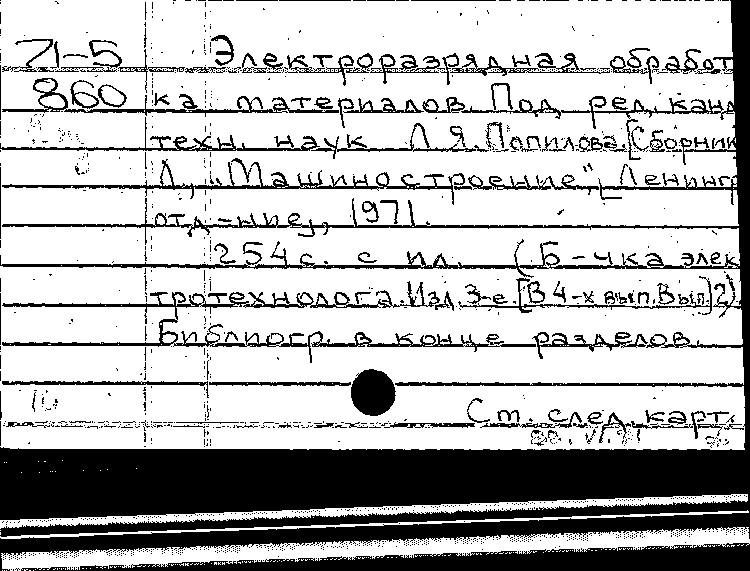 71-5 Электроразрядная обработ
860 ка материалов. Под ред. канд
техн. наук Л. Я. Попилова. [Сборник
Л., "Машиностроение", [Ленингр
отд-ние], 1971.
254 с. с ил. (Б-чка элек
тротехнолога. Изд. 3-е. [В 4-х вып. Вып.] 2)
Библиогр. в конце разделов.
См. след. карт.